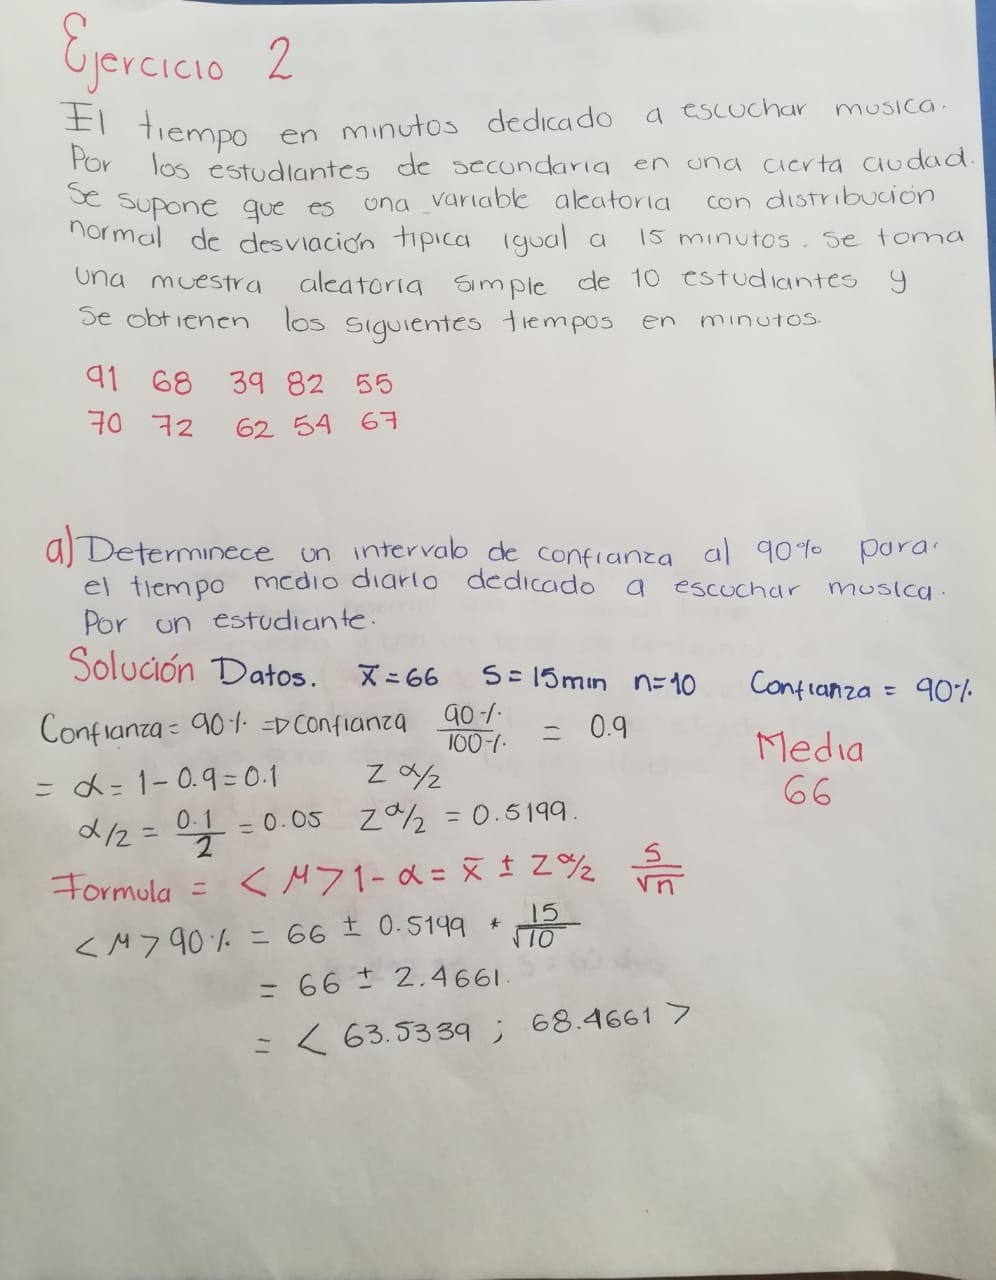 Ejercicio 2
El tiempo en minutos dedicado a escuchar musica.
Por los estudiantes de secundaria en una cierta ciudad.
Se supone que es una variable aleatoria con distribución
normal de desviación tipica igual a 15 minutos. Se toma
una muestra aleatoria simple de 10 estudiantes y
Se obtienen los siguientes tiempos en minutos.
91 68 39 82 55
70 72 62 54 67
a) Determinece un intervalo de confianza al 90% para
el tiempo medio diario dedicado a escuchar musica.
Por un estudiante.
Solución Datos. x̄=66 S=15min n=10 Confianza = 90%
Confianza = 90% => Confianza 90%/100% = 0.9
Media
66
= α = 1-0.9=0.1 Z α/2
α/2 = 0.1/2 = 0.05 Z α/2 = 0.5199.
Formula = < M > 1-α = x̄ ± Z α/2 S/√n
< M > 90% = 66 ± 0.5199 * 15/√10
= 66 ± 2.4661.
= < 63.5339 ; 68.4661 >